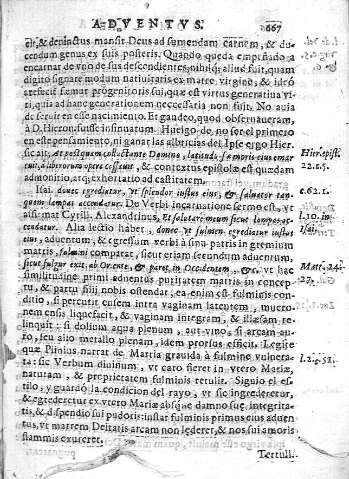 ADVENTVS. 667
cit, & deuinctus mansit Deus ad sumendam carnem, & du-
cendum genus ex suis posteris. Quando queda empreñado a
encarnar de vno de sus descendientes, nihil aliud fuit, quam
digito signare modum natiuitatis ex matre virgine, & idcò
femur progenitoris sui, quæ est virtus generatiua vi-
ri, quia ad hanc generationem neccessaria non fuit. No auia
de seruir en esse nacimiento. Et gaudeo, quod obseruaueram,
à D. Hieron. fuisse insinuatum. Huelgo de no ser el primero
en esse pensamiento, ni ganar las albricias del Ipse ergo Hier.
sic ait,
Hier. epist.
22. c. 5.
& contextus epistolæ est quædam
admonitio, atq; exhortatio ad castitatem.
Isai. donec egrediatur, vt splendor iustus eius, & saluator tan-
quam lampas accendatur. De Verbi incarnatione sermo est, vt
c. 62. 1.
affirmat Cyrill. Alexandrinus, Et salutare meum sicut lampas ac-
l. 10. in
cendatur. Alia lectio habet, donec vt fulmen egrediatur iustus
Isai.
eius, aduentum, & egressum verbi à sinu patris in gremium
matris, fulmini comparat, sicut etiam secundum aduentum,
sicut fulgur exit ab Oriente, & paret in Occidentem, &c. vt hac
Matt. 24.
27.
similitudine primi aduentus puritatem matris in concep-
tu, & partu filij nobis ostendat, ea enim est fulminis con-
ditio, si percutit ensem intra vaginam latentem, mucro-
nem ensis liquefacit, & vaginam integram, & illæsam re-
linquit: si dolium aqua plenum, aut vino, si arcam au-
ro, seu alio metallo plenam, idem prorsus efficit. Legite
quæ Plinius narrat de Martia grauida à fulmine vulnera-
ta: sic Verbum diuinum, vt caro fieret in vtero Mariæ,
l. 2. c. 51.
naturam, & proprietatem fulminis retulit. Siguio el es-
tilo, y guardò la condicion del rayo, vt sic ingrederetur,
& egrederetur ex vtero Mariæ absque damno suę integrita-
tis, & dispendio sui pudoris: instar fulminis primus eius aduen-
tus, vt matrem Deitatis arcam non læderet, & nos sui amoris
flammis exureret.
Tertull.